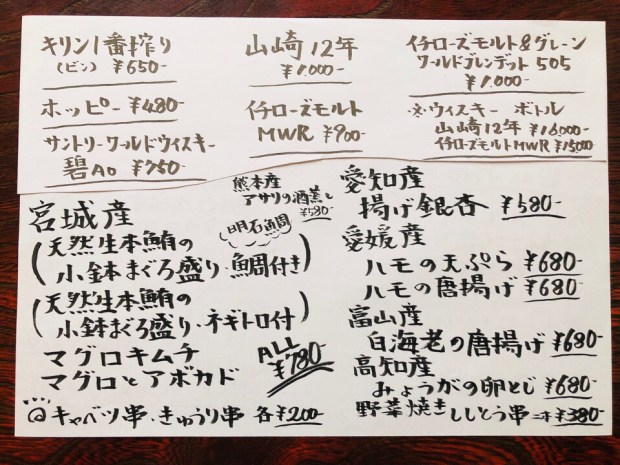 キリン1番搾り
(ビン) ¥650-
ホッピー ¥480-
サントリーワールドウィスキー
碧Ao ¥750-
山崎12年
¥1.000-
イチローズモルト
MWR ¥900-
イチローズモルト&グレーン
ワールドブレンデット 505
¥1.000-
※ウィスキー ボトル
山崎12年 ¥16000-
イチローズモルトMWR ¥15000
熊本産
アサリの酒蒸し
¥580-
宮城産
明石魚周
(天然生本鮪の
小鉢まぐろ盛り・魚周付き)
(天然生本鮪の
小鉢まぐろ盛り・ネギトロ付)
マグロキムチ
マグロとアボカド
ALL
¥780-
◎キャベツ串・きゅうり串 各¥200-
愛知産
揚げ銀杏 ¥580-
愛媛産
ハモの天ぷら ¥680-
ハモの唐揚げ ¥680-
富山産
白海老の唐揚げ ¥680-
高知産
みょうがの卵とじ ¥680-
野菜焼き ししとう串 一本 ¥380-